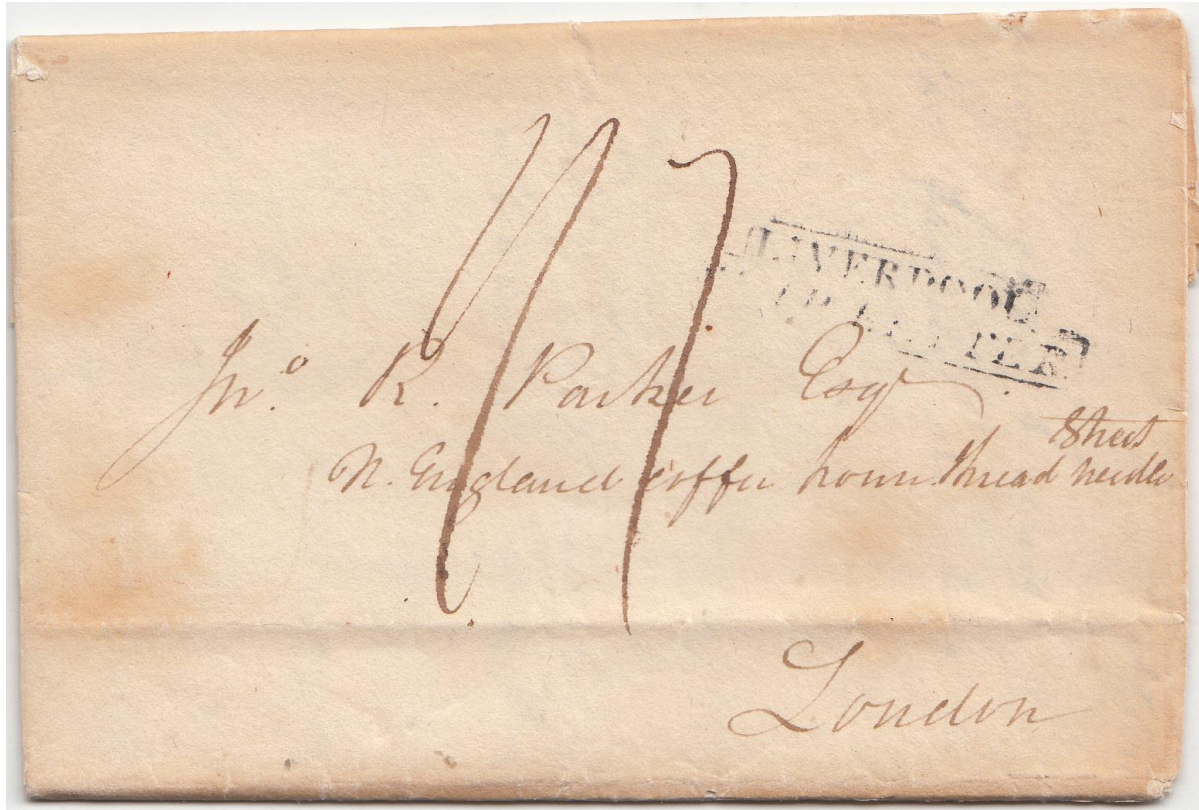 LIVERPOOL
SHIP LETTER
Jno. R. Parker Esqr
Street
N. England Coffee house thread needle
London